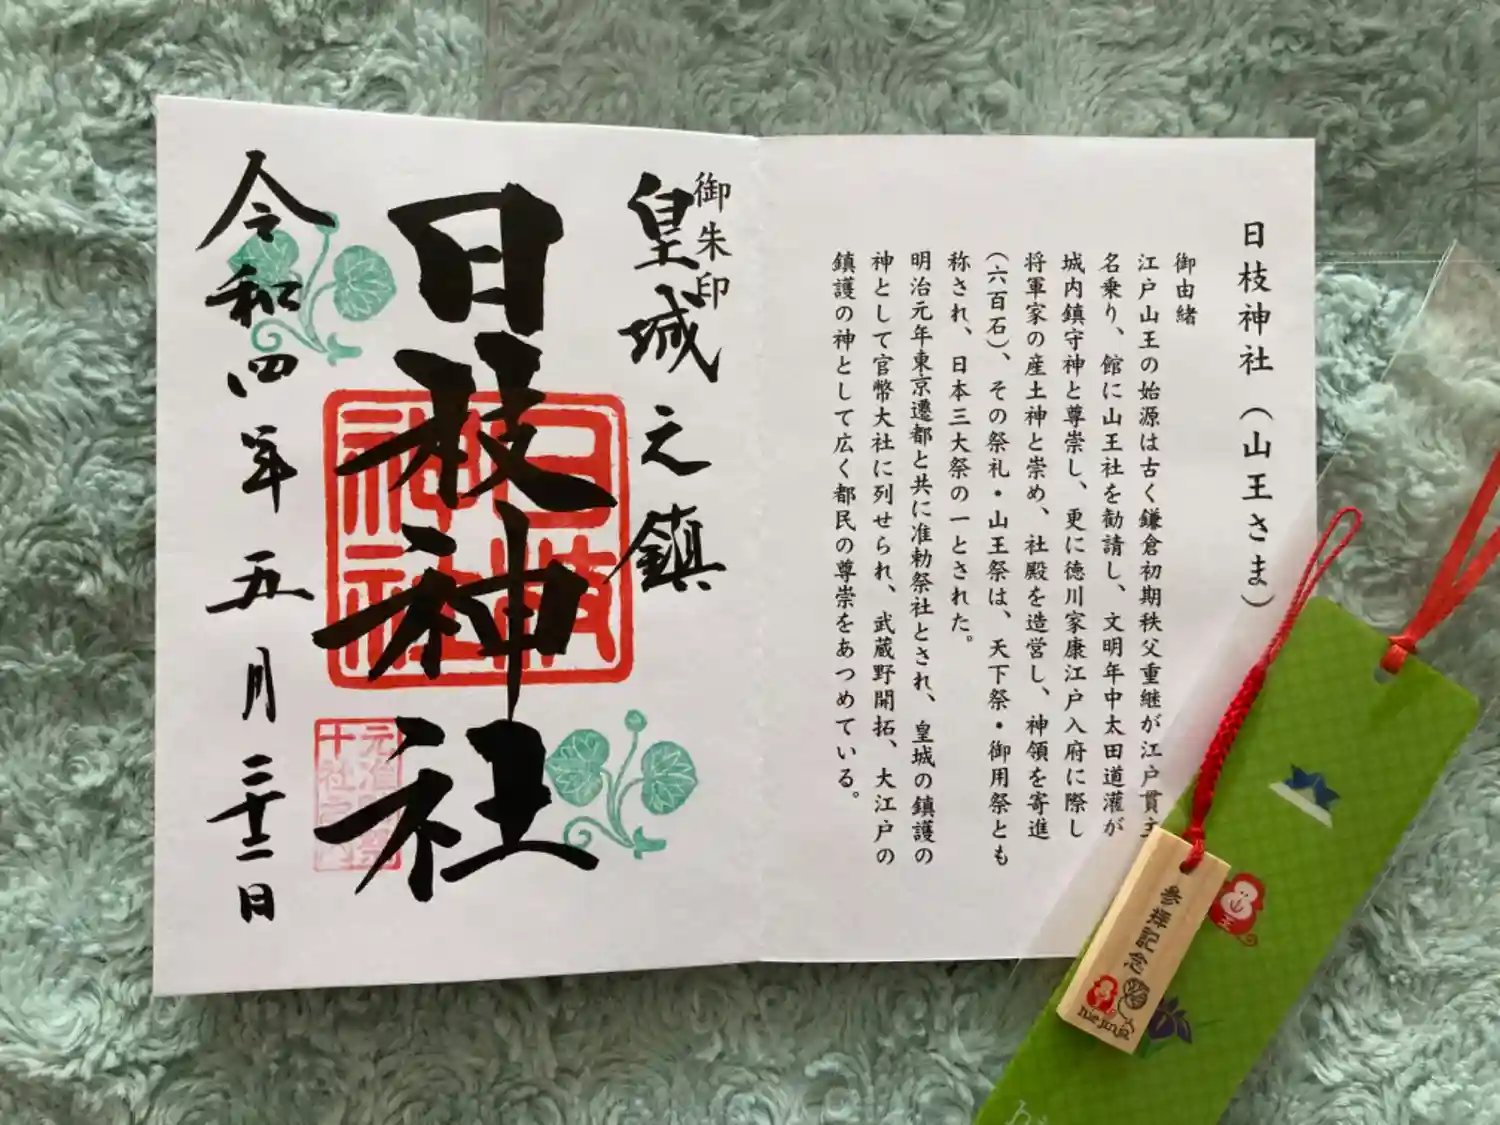 日枝神社（山王さま）
御由緒
江戸山王の始源は古く鎌倉初期秩父重継が江戸貫主
名乗り、館に山王社を勧請し、文明年中太田道灌が
城内鎮守神と尊崇し、更に徳川家康江戸入府に際し
将軍家の産土神と崇め、社殿を造営し、神領を寄進
（六百石）、その祭礼・山王祭は、天下祭・御用祭とも
称され、日本三大祭の一とされた。
明治元年東京遷都と共に准勅祭社とされ、皇城の鎮護の
神として官幣大社に列せられ、武蔵野開拓、大江戸の
鎮護の神として広く都民の尊崇をあつめている。
御朱印
皇城之鎮
日枝神社
日枝
神社
元准勅祭
十社之内
令和四年五月二十二日
参拝記念
hie jinja
山王